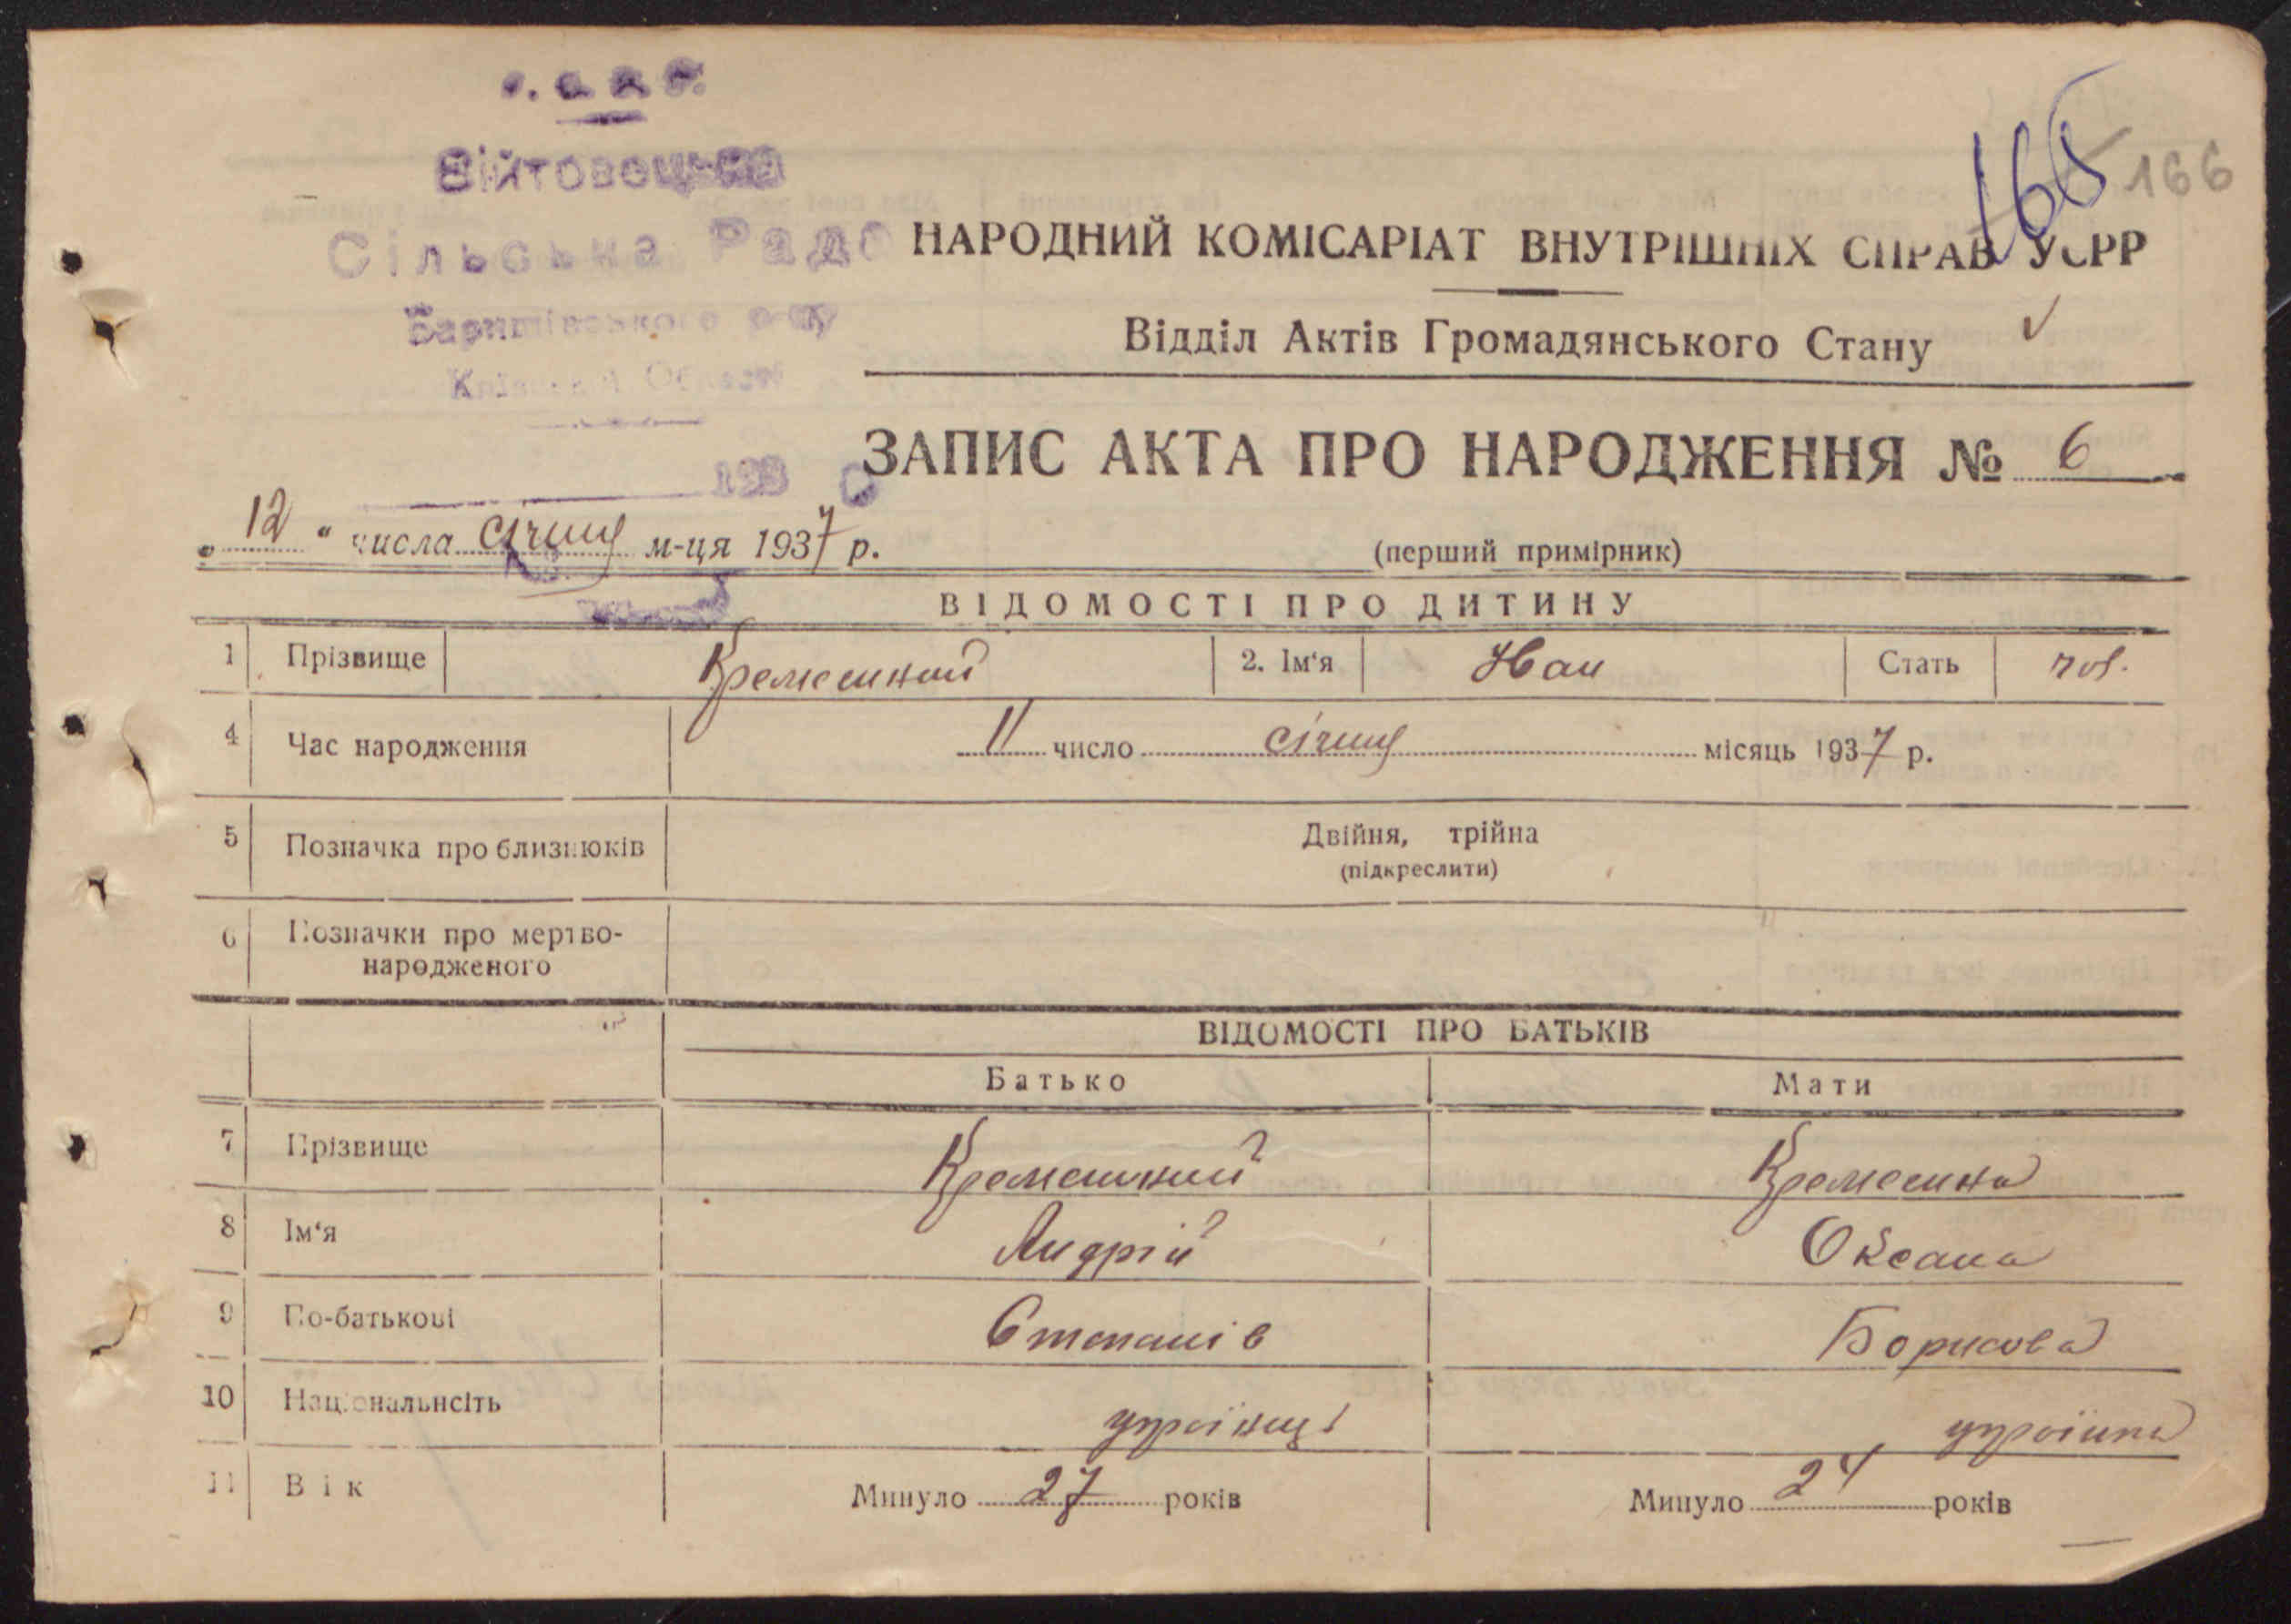 Війтовецька
Сільська Рада
Баришівського р-ну
Київської Області
193
165 166
НАРОДНИЙ КОМІСАРІАТ ВНУТРІШНІХ СПРАВ УСРР
Відділ Актів Громадянського Стану
ЗАПИС АКТА ПРО НАРОДЖЕННЯ № 6
„ 12 “ числа січня м-ця 1937 р.
(перший примірник)
ВІДОМОСТІ ПРО ДИТИНУ
1 Прізвище Кременний 2. Ім‘я Іван Стать чол.
4 Час народження 11 число січня місяць 1937 р.
5 Позначка про близнюків Двійня, трійна
(підкреслити)
6 Позначки про мертво-
народженого
ВІДОМОСТІ ПРО БАТЬКІВ
Батько Мати
7 Прізвище Кременний Кременна
8 Ім‘я Андрій Оксана
9 По-батькові Степанів Борисова
10 Національнсіть українць українка
11 Вік Минуло 27 років Минуло 24 років